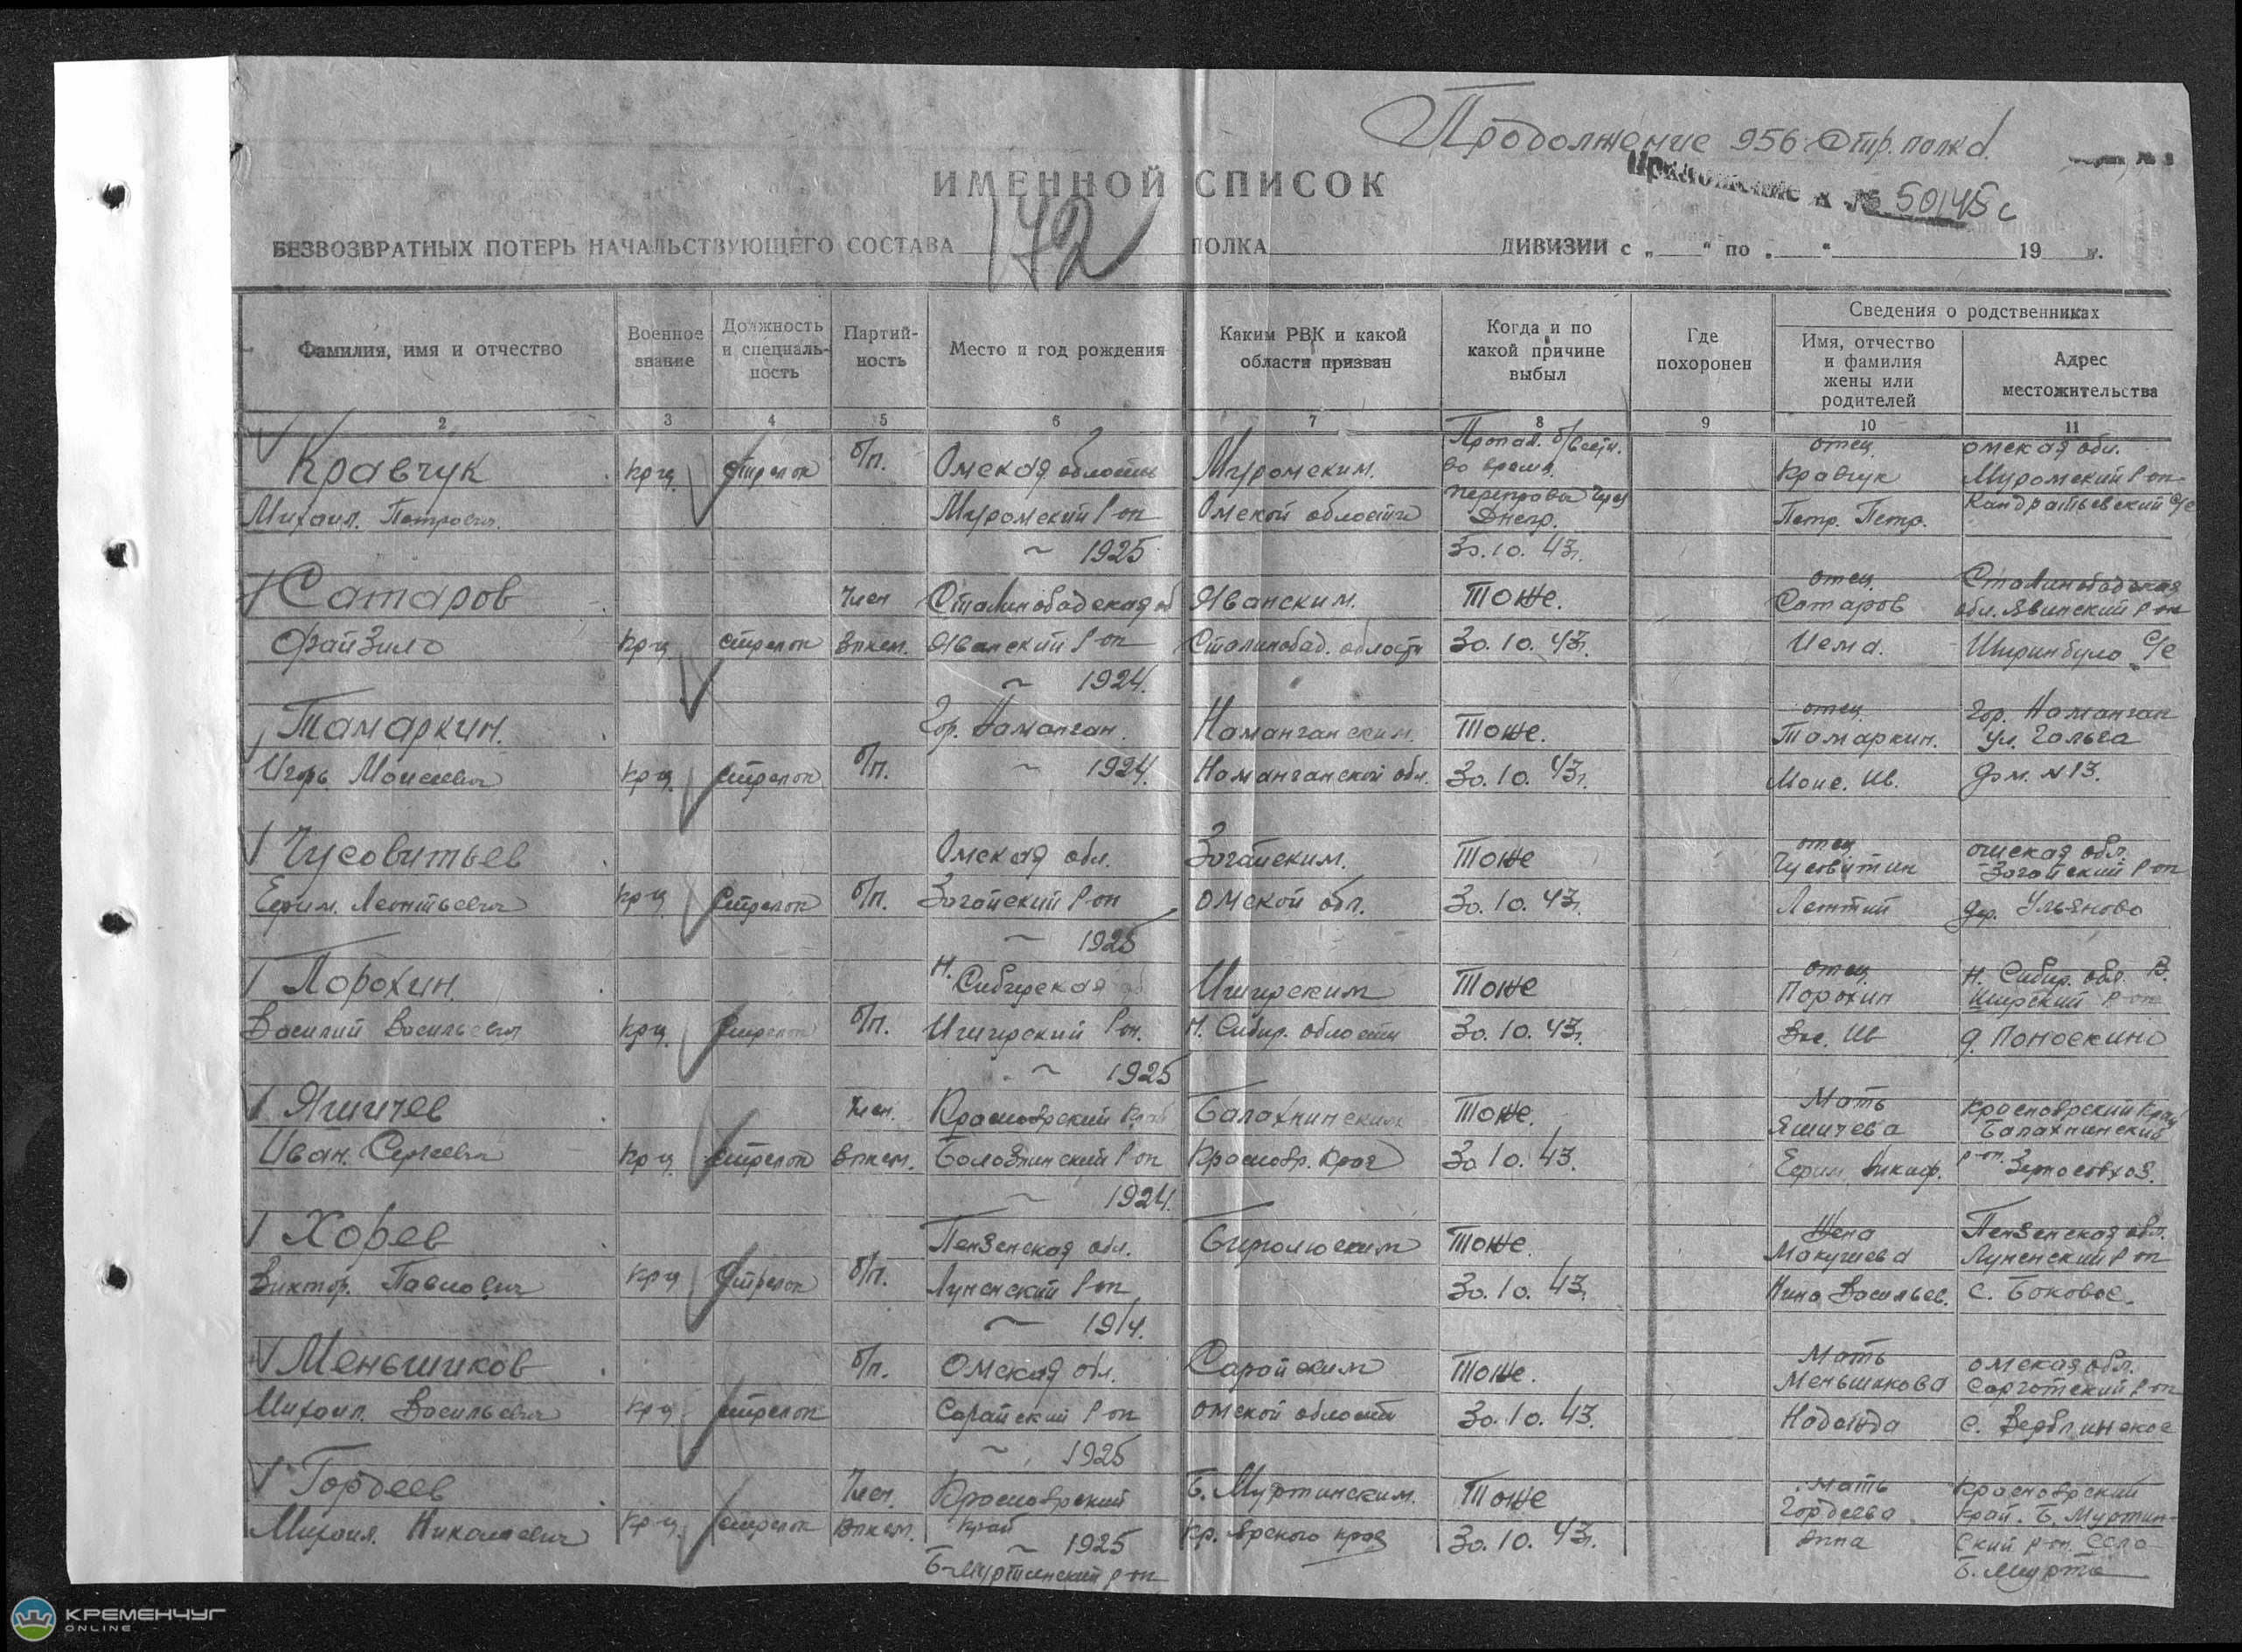 Продолжение 956 стр. полка
Приложение к № 50145с
ИМЕННОЙ СПИСОК
172
БЕЗВОЗВРАТНЫХ ПОТЕРЬ НАЧАЛЬСТВУЮЩЕГО СОСТАВА ПОЛКА ДИВИЗИИ с „ “ по „ “ 19 г.
Фамилия, имя и отчество
Военное звание
Должность и специальность
Партийность
Место и год рождения
Каким РВК и какой области призван
Когда и по какой причине выбыл
Где похоронен
Сведения о родственниках
Имя, отчество и фамилия жены или родителей
Адрес местожительства
2 3 4 5 6 7 8 9 10 11
Кравчук кр-ц стрелок б/п. Омская область Муромским. Пропал. б/вести. во время отец Кравчук омская обл. Муромский р-он
Михаил. Петрович. Муромский р-он Омской области переправы через Днепр. Петр. Петр. Кандратьевский с/с
~ 1925 30.10.43г.
Сатаров Член Сталинободская об Яванским. Тоже. отец Сатаров Сталинободская обл. Явинский р-он
Файзило кр-ц стрелок влксм. Яванский р-он Сталинобад. области 30.10.43г. Иема. Ширинбуло с/с
~ 1924.
Тамаркин. Гор. Наманган. Наманганским. Тоже. отец Тамаркин. Гор. Наманган ул. Гольга
Игорь Моисеевич кр-ц стрелок б/п. ~ 1924. Наманганской обл. 30.10.43г. Моис. Ив. дом. №13.
Чусовитьев Омская обл. Загайским. Тоже отец Чусовитин омская обл. Загайский р-он
Ефим. Леонтьевич кр-ц стрелок б/п. Загайский р-он омской обл. 30.10.43г. дер. Ульяново
~ 1925
Порохин. Н. Сибирская Иширским Тоже отец Порохин Н. Сибир. обл. В.
Василий Васильевич кр-ц стрелок б/п. Иширский р-он. Н. Сибир. области 30.10.43г. Вас. Ив д. Поноскино
~ 1925
Яшичев Член. Красноярский край Балахнинским Тоже. Мать Яшичева Красноярский край Балахнинский
Иван. Сергеевич кр-ц стрелок влксм. р-он Краснояр. края 30.10.43. р-он. Зерносовхоз.
~ 1924.
Хорев Пензенская обл. Тоже. Жена Макушева Пензенская обл. Луненский р-он
Виктор. Павлович кр-ц стрелок б/п. Луненский р-он 30.10.43. Нина Васильев. с. Боковое.
~ 1914.
Меньшиков б/п. Омская обл. Саргайским Тоже. Мать Меньшикова омская обл. р-он
Михаил. Васильевич кр-ц стрелок р-он омской области 30.10.43. Надежда
~ 1925
Гордеев Член. Красноярский Б. Муртинским. Тоже мать Гордеева Красноярский край. Б. Муртин-
Михаил. Николаевич кр-ц стрелок влксм. край ~ 1925 Кр. Ярского края 30.10.43г. Анна ский р-он. село
Б-Муртинский р-он Б. Мурта
КРЕМЕНЧУГ
ONLINE